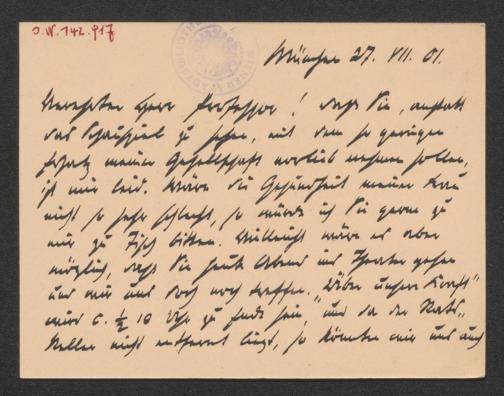 J.N. 142.917
München 27. VII. 01.
Verehrter Herr Professor! Dass Sie, anstatt
das Schauspiel zu sehen, mit dem so geringen
Ersatz meiner Gesellschaft vorlieb nehmen sollen,
ist mir leid. Wäre die Gesundheit meiner Frau
nicht so sehr schlecht, so würde ich Sie gerne zu
mir zu Tisch bitten. Vielleicht wäre es aber
möglich, dass Sie heute Abend ins Theater gehen
und wir uns doch noch treffen. "Über unsere Kraft"
wird c. ½ 10 Uhr zu Ende sein, und da der Rats-
keller nicht entfernt liegt, so könnten wir uns auch